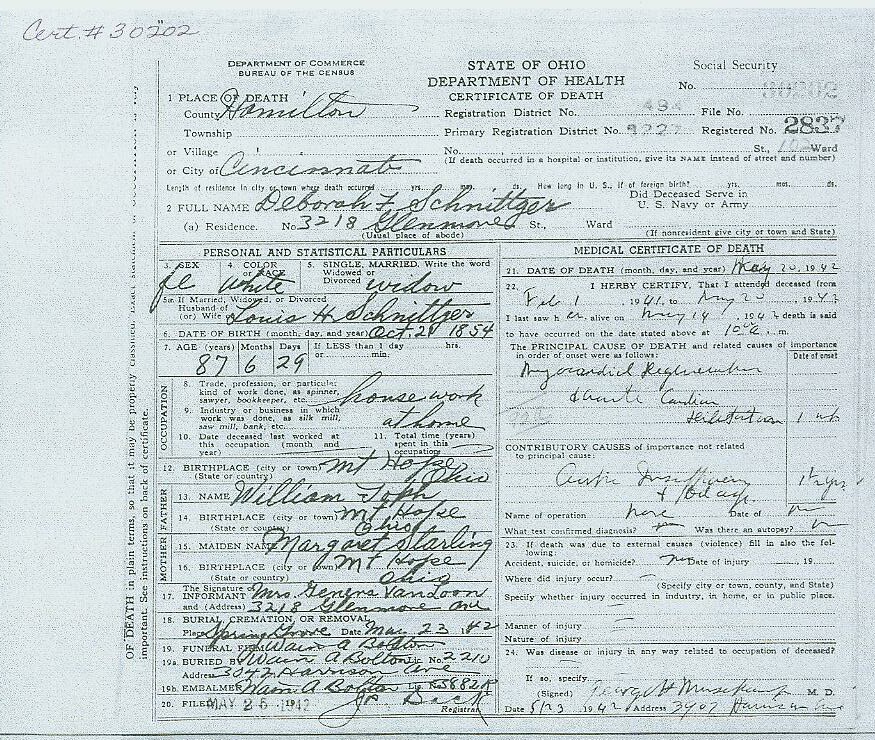 Cert. # 30202
DEPARTMENT OF COMMERCE
BUREAU OF THE CENSUS
STATE OF OHIO
DEPARTMENT OF HEALTH
CERTIFICATE OF DEATH
Social Security
No.
30202
1 PLACE OF DEATH
County Hamilton
Registration District No. 494 File No.
Township
Primary Registration District No. 8227 Registered No. 2837
or Village
No. St., Ward
(If death occurred in a hospital or institution, give its NAME instead of street and number)
or City of Cincinnati
Length of residence in city or town where death occurred yrs. mos. ds. How long in U. S., if of foreign birth? yrs. mos. ds.
2 FULL NAME Deborah F Schnittger
Did Deceased Serve in
U. S. Navy or Army
(a) Residence. No. 3218 Glenmore St., Ward
(Usual place of abode) (If nonresident give city or town and State)
PERSONAL AND STATISTICAL PARTICULARS
3. SEX fe 4. COLOR or RACE White 5. SINGLE, MARRIED. Write the word
Widowed or
Divorced widow
5a. If Married, Widowed, or Divorced
Husband of
(or) Wife Louis H Schnittger
6. DATE OF BIRTH (month, day, and year) Oct. 21 1854
7. AGE (years) Months Days If LESS than 1 day hrs.
or min.
87 6 29
OCCUPATION
8. Trade, profession, or particular
kind of work done, as spinner
sawyer, bookkeeper, etc. house work
9. Industry or business in which
work was done, as silk mill,
saw mill, bank, etc. at home
10. Date deceased last worked at
this occupation (month and
year)
11. Total time (years)
spent in this
occupation
12. BIRTHPLACE (city or town) Mt Hope
(State or country) Ohio
FATHER
13. NAME William Toph
14. BIRTHPLACE (city or town) Mt Hope
(State or country) Ohio
MOTHER
15. MAIDEN NAME Margaret Starling
16. BIRTHPLACE (city or town) Mt Hope
(State or country) Ohio
The Signature of
17. INFORMANT Mrs. Geneva Van Loon
and (Address) 3218 Glenmore Ave
18. BURIAL, CREMATION, OR REMOVAL
Place Spring Grove Date May 23 42
19. FUNERAL FIRM Wain A Bolton
19a. BURIED BY Wain A Bolton Lic. No. 2210
Address 3042 Harrison Ave
19b. EMBALMER Wain A Bolton Lic. No. 5882A
20. FILED MAY 26 1942
Registrar
MEDICAL CERTIFICATE OF DEATH
21. DATE OF DEATH (month, day, and year) May 20, 1942
22. I HEREBY CERTIFY, That I attended deceased from
Feb 1, 1941, to May 20, 1942
I last saw h er alive on May 19, 1942 death is said
to have occurred on the date stated above at m.
The PRINCIPAL CAUSE OF DEATH and related causes of importance
in order of onset were as follows:
Date of onset
Myocardial Degeneration
Acute Cardiac
Dilatation 1 wk
CONTRIBUTORY CAUSES of importance not related
to principal cause:
Aortic Insufficiency
+ Old age
Name of operation none Date of
What test confirmed diagnosis? Was there an autopsy?
23. If death was due to external causes (violence) fill in also the following:
Accident, suicide, or homicide? no Date of injury , 19
Where did injury occur?
(Specify city or town, county, and State)
Specify whether injury occurred in industry, in home, or in public place.
Manner of injury
Nature of injury
24. Was disease or injury in any way related to occupation of deceased?
If so, specify
(Signed) M. D.
Date 5/23, 1942 Address 3907 Harrison Ave
OF DEATH in plain terms, so that it may be properly classified.
important. See instructions on back of certificate.